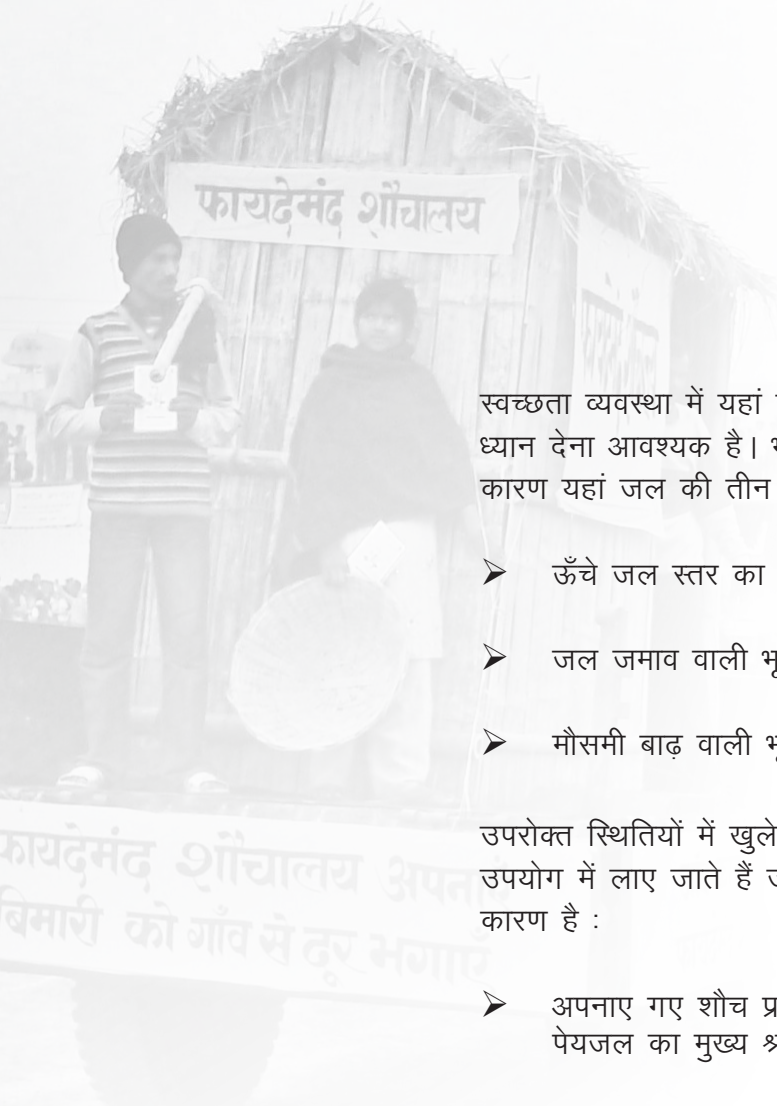 फायदेमंद शौचालय
स्वच्छता व्यवस्था में यहां
ध्यान देना आवश्यक है।
कारण यहां जल की तीन
➢ ऊँचे जल स्तर का
➢ जल जमाव वाली
➢ मौसमी बाढ़ वाली
उपरोक्त स्थितियों में खुले
उपयोग में लाए जाते हैं
कारण है :
➢ अपनाए गए शौच
पेयजल का मुख्य
फायदेमंद शौचालय
बिमारी को गाँव से दूर भगाएँ